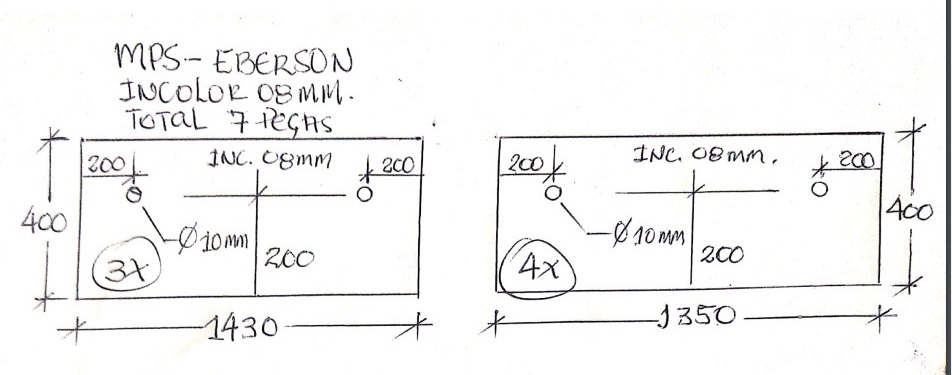 MPS- EBERSON
INCOLOR 08MM.
TOTAL 7 PEÇAS
200
INC. 08MM
200
400
Ø10mm
200
3X
1430
200
INC. 08MM.
200
400
Ø10mm
200
4X
1350